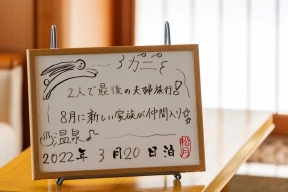 2人で最後の夫婦旅行!
8月に新しい家族が仲間入り
温泉♪
2022年 3月20日泊